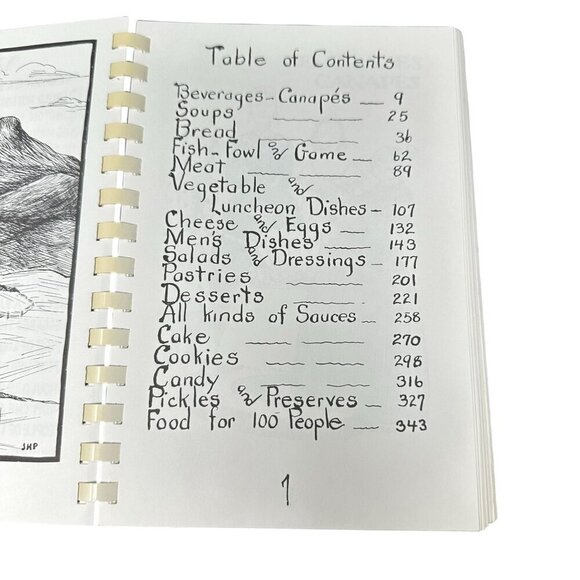 Table of Contents
Beverages-Canapés — 9
Soups — — 25
Bread — — 36
Fish-Fowl and Game — 62
Meat — — 89
Vegetable and
Luncheon Dishes - 107
Cheese and Eggs — 132
Men's Dishes — 143
Salads and Dressings - 177
Pastries — — 201
Desserts — 221
All kinds of Sauces — 258
Cake — — 270
Cookies — — 298
Candy — — 316
Pickles and Preserves — 327
Food for 100 People — 343
JHP
1